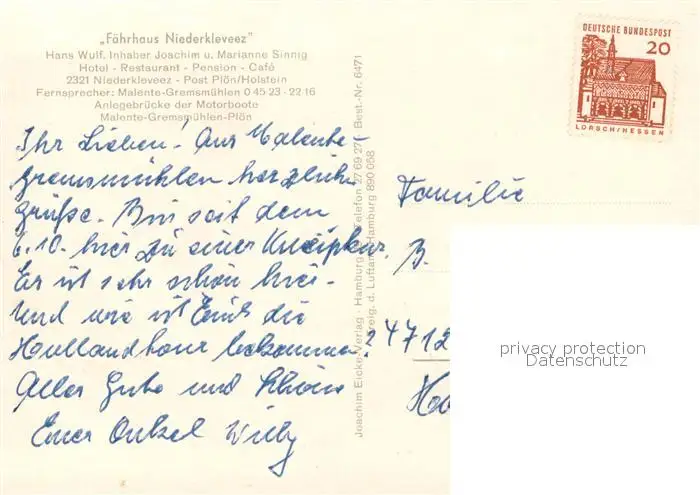 „Fährhaus Niederkleveez"
Hans Wulf, Inhaber Joachim u. Marianne Sinnig
Hotel - Restaurant - Pension - Café
2321 Niederkleveez - Post Plön/Holstein
Fernsprecher: Malente-Gremsmühlen 0 45 23 - 22 16
Anlegebrücke der Motorboote
Malente-Gremsmühlen-Plön
Ihr Lieben! Aus Malente-
gremsmühlen herzliche
Grüße. Bin seit dem
6.10. hier zu einer Kneippkur.
Es ist sehr schön hier.
Und wie ist Euch die
Hollandtour bekommen?
Alles Gute und
Euer Onkel Willy
Joachim Eicke-Verlag - Hamburg Telefon 27 69 27 Best.-Nr. 6471
Freig. d. Luftamt Hamburg 890 058
DEUTSCHE BUNDESPOST
20
LORSCH/HESSEN
Familie
B.
4712
privacy protection
Datenschutz